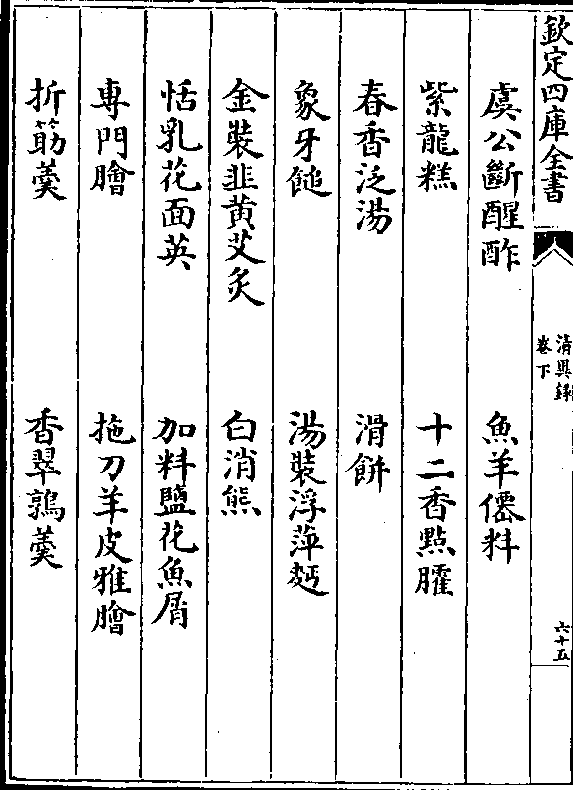 欽定四庫全書
清異錄
卷下
六十五
虞公斷醒酢　魚羊僊料
紫龍糕　十二香點臛
春香泛湯　滑餅
象牙䭔　湯裝浮萍麪
金裝韭黄艾炙　白消熊
恬乳花面英　加料鹽花魚屑
專門膾　拖刀羊皮雅膾
折筯羮　香翠鶉羮